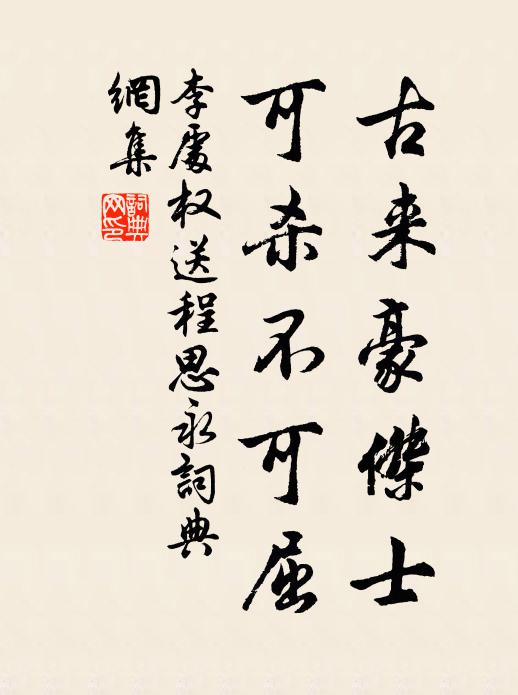 古来豪傑士
可杀不可屈
李處权送程思永詞典
網集
詞典
网印